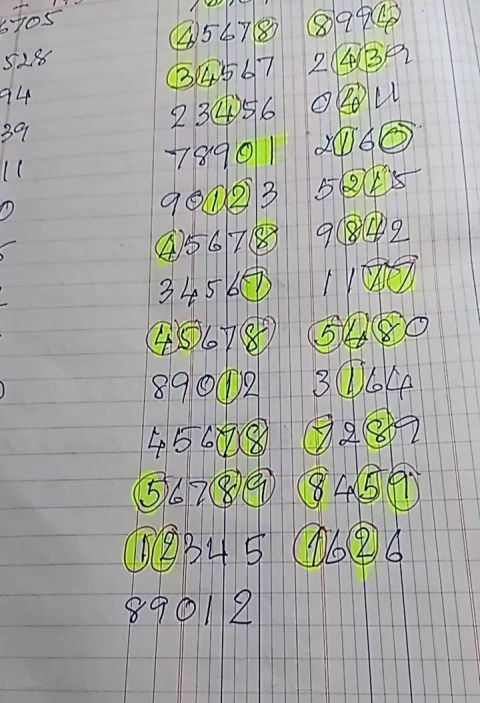 6705
528 45678 8994
94 34567 2439
39 23456 0411
11 78901 2160
0 90123 5215
45678 9842
34567 1177
45678 5480
89012 3164
45678 7289
56789 8459
12345 1626
89012